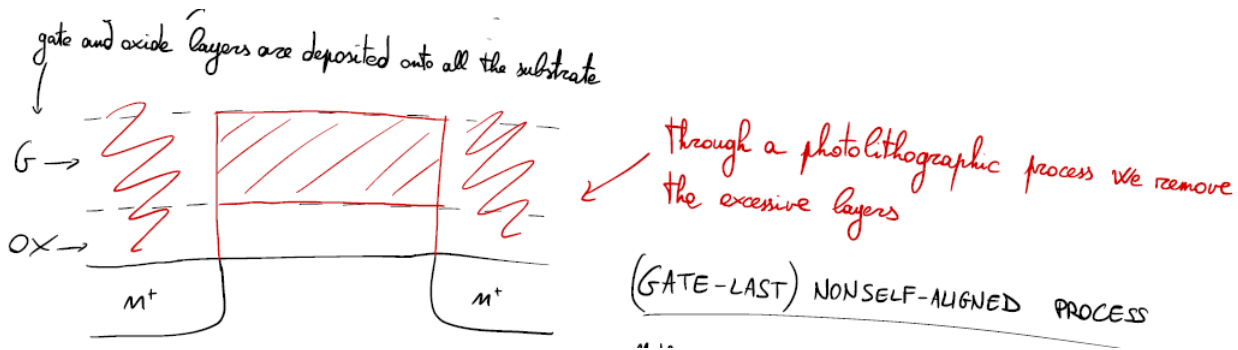 gate and oxide layers are deposited onto all the substrate
G →
OX →
n+
n+
through a photolithographic process we remove
the excessive layers
(GATE-LAST) NONSELF-ALIGNED PROCESS